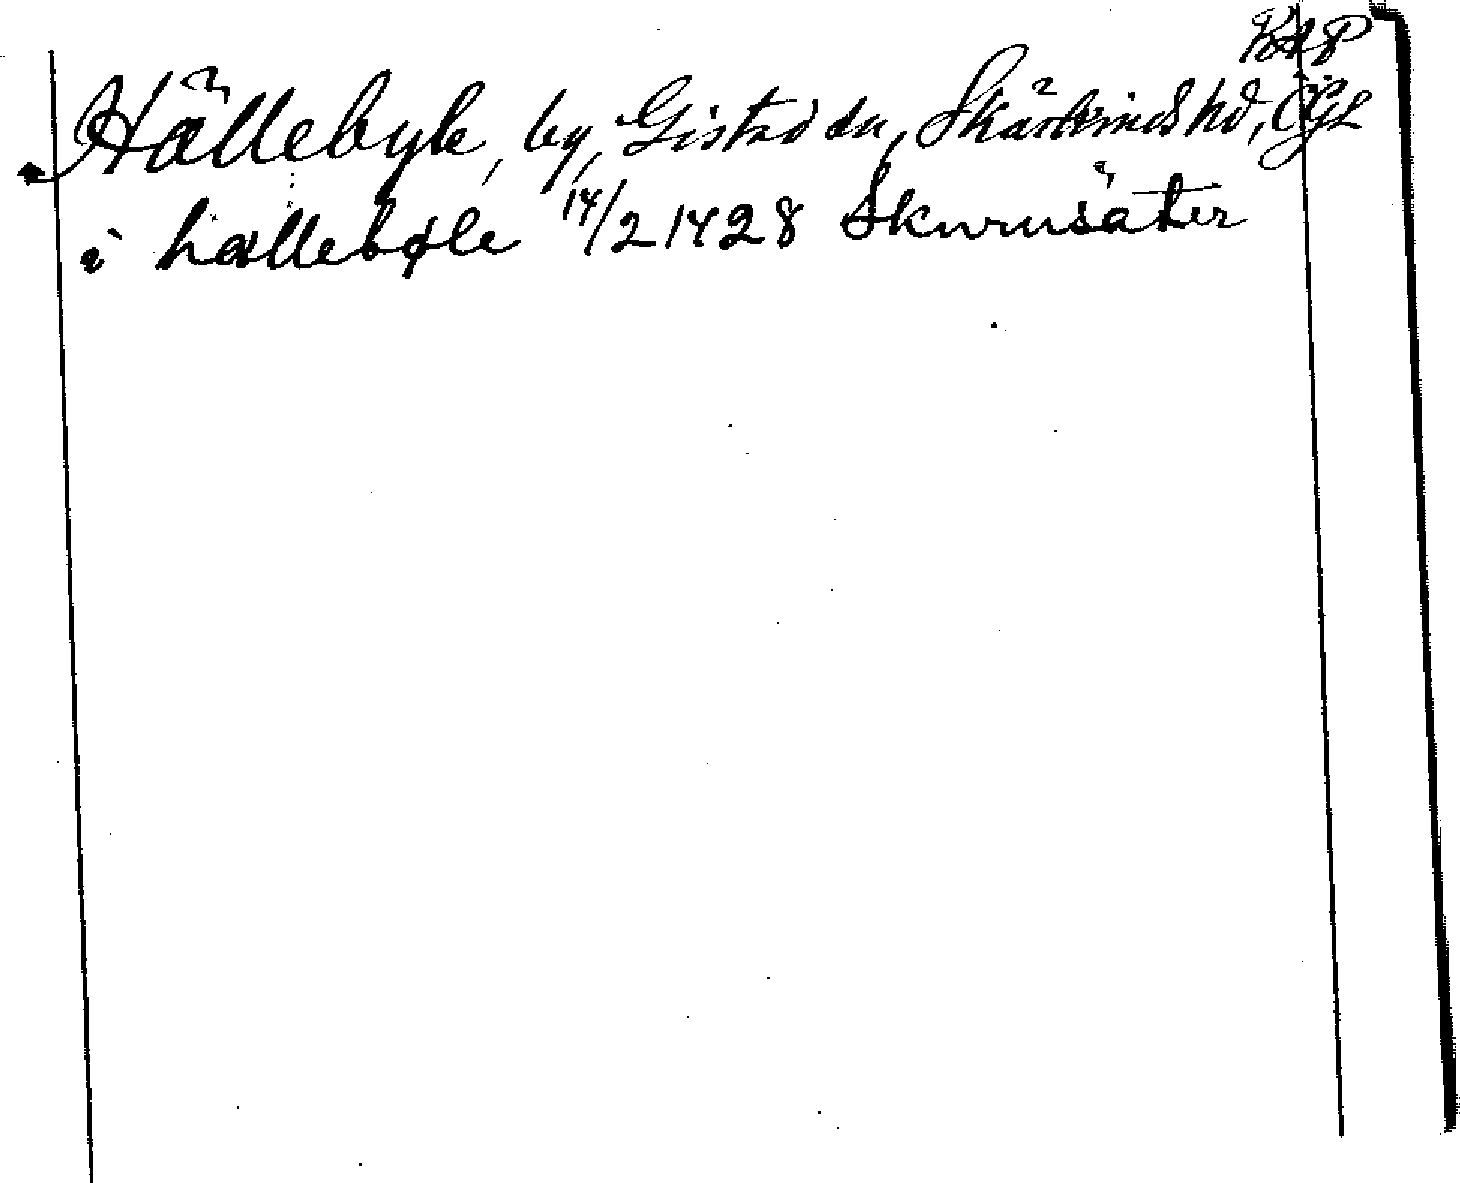 KHP
Hällebyle, by, Gistad sn, Skärkinds hd, ÖgL
i hællebøle 14/2 1428 Skurusäter